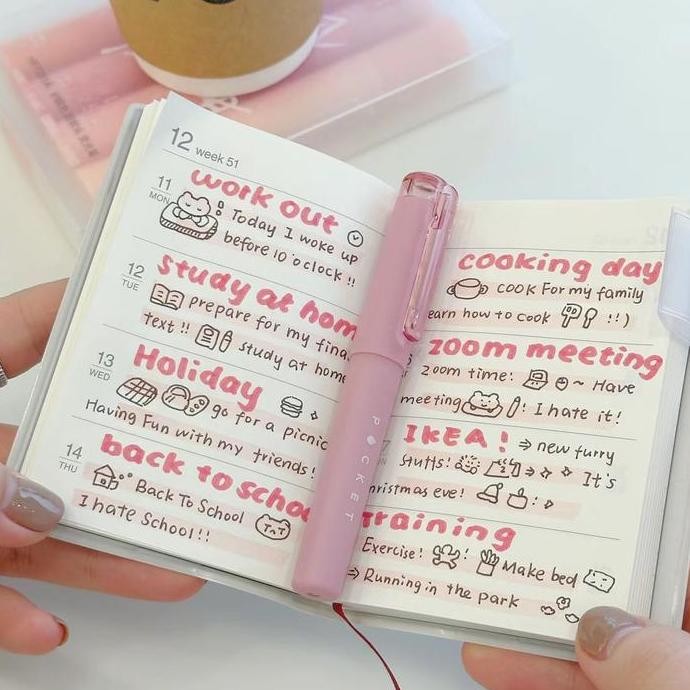 12 week 51
11
MON
work out
Today I woke up
before 10 o'clock !!
12
TUE
study at hom
prepare for my fina
text !! study at home
13
WED
Holiday
go for a picnic
Having Fun with my friends!
14
THU
back to schoo
Back To School
I hate School!!
POCKET
cooking day
cook For my family
earn how to cook !!)
zoom meeting
zoom time! ~ Have
meeting ! I hate it!
IKEA! ⇒ new furry
stuffs! ⇒ It's
hristmas eve!
Training
Exercise! Make bed
⇒ Running in the park